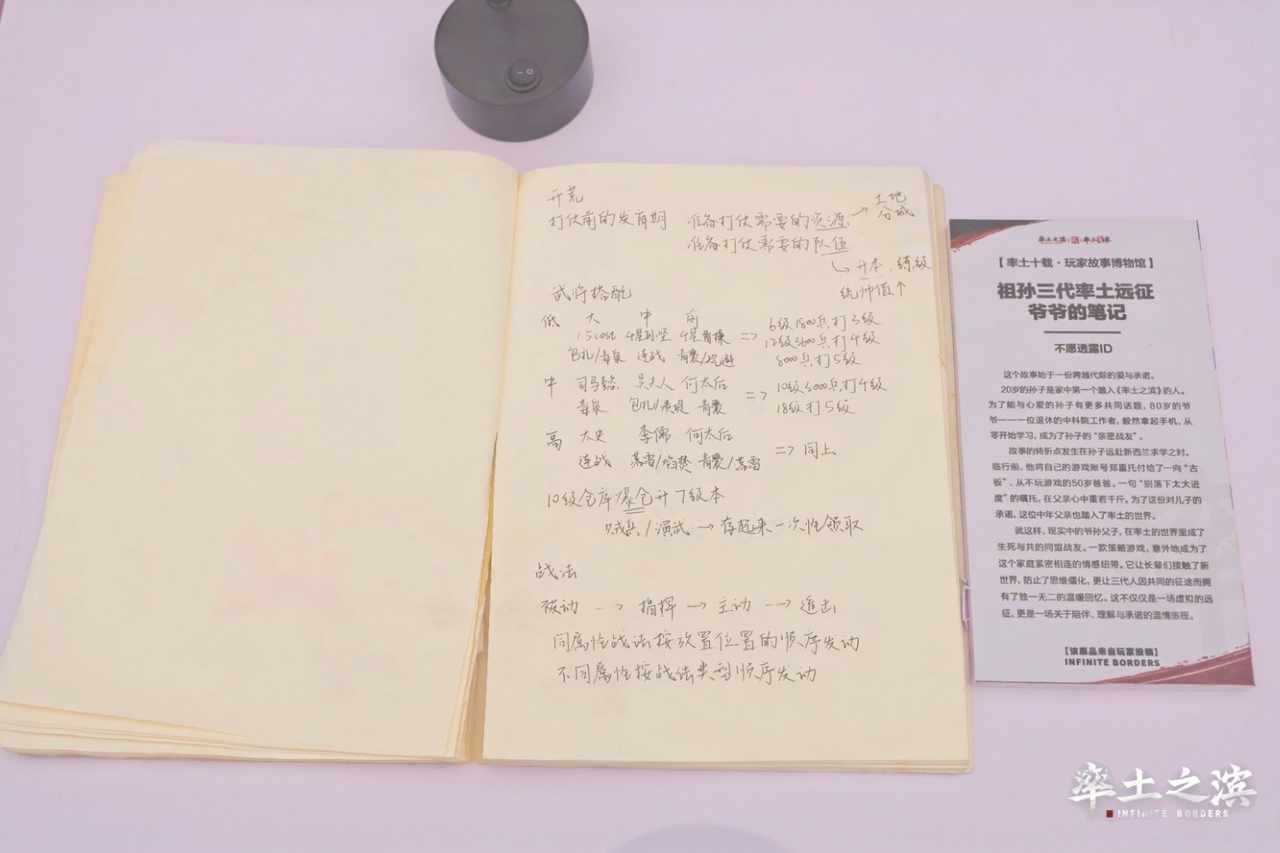 开荒
打仗前的发育期 准备打仗需要的资源 → 土地
分城
准备打仗需要的队伍
↳ 升本、练级
统帅值↑
武将搭配
低 大 中 前
1.5cost 4星孙坚 4星曹操 => 6级1800兵打3级
12级3600兵打4级
包扎/毒泉 连战 青囊/规避 8000兵打5级
中 司马懿 吴夫人 何太后 => 10级3000兵打4级
毒泉 包扎/ 青囊 18级打5级
高 大史 李儒 何太后 => 同上
连战 落雷/焰焚 青囊/落雷
10级仓库爆仓升7级本
贼兵/演武 → 存起来一次性领取
战法
被动 → 指挥 → 主动 → 追击
同属性战法按放置位置的顺序发动
不同属性按战法类型顺序发动
率土之滨
【率土十载·玩家故事博物馆】
祖孙三代率土远征
爷爷的笔记
不愿透露ID
这个故事始于一份跨越代际的爱与承诺。
20岁的孙子是家中第一个踏入《率土之滨》的人。
为了能与心爱的孙子有更多共同话题，80岁的爷
爷———一位退休的中科院工作者，毅然拿起手机，从
零开始学习，成为了孙子的“亲密战友”。
故事的转折点发生在孙子远赴新西兰求学之时。
临行前，他将自己的游戏账号郑重托付给了一向“古
板”、从不玩游戏的50岁爸爸。一句“别落下太大进
度”的嘱托，在父亲心中重若千斤。为了这份对儿子的
承诺，这位中年父亲也踏入了率土的世界。
就这样，现实中的爷孙父子，在率土的世界里成了
生死与共的同盟战友。一款策略游戏，意外地成为了
这个家庭紧密相连的情感纽带。它让长辈们接触了新
世界，防止了思维僵化，更让三代人因共同的征途而拥
有了独一无二的温暖回忆。这不仅仅是一场虚拟的远
征，更是一场关于陪伴、理解与承诺的温情旅程。
【该展品来自玩家投稿】
INFINITE BORDERS
率土之滨
INFINITE BORDERS